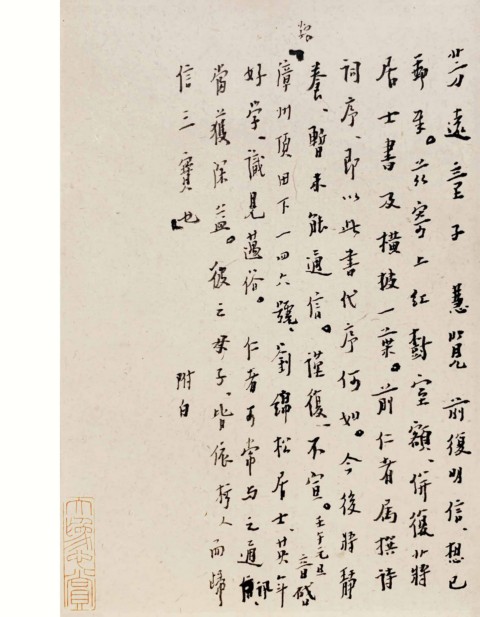 芳遠童子 慧覽 前復明信、想已
至。茲寄上紅樹室額、併復將
居士書及橫披一葉。前仁者屬撰詩
詞序、即以此書代序何如。今後將靜
養、暫未能通信。謹復、不宣。壬午元旦
音啓
漳州頂田下一四六號、劉錦松居士、英年
好学、識見邁俗。仁者可常与之通訊、
當獲深益。彼之母子、皆依朽人而歸
信三寶也
附白